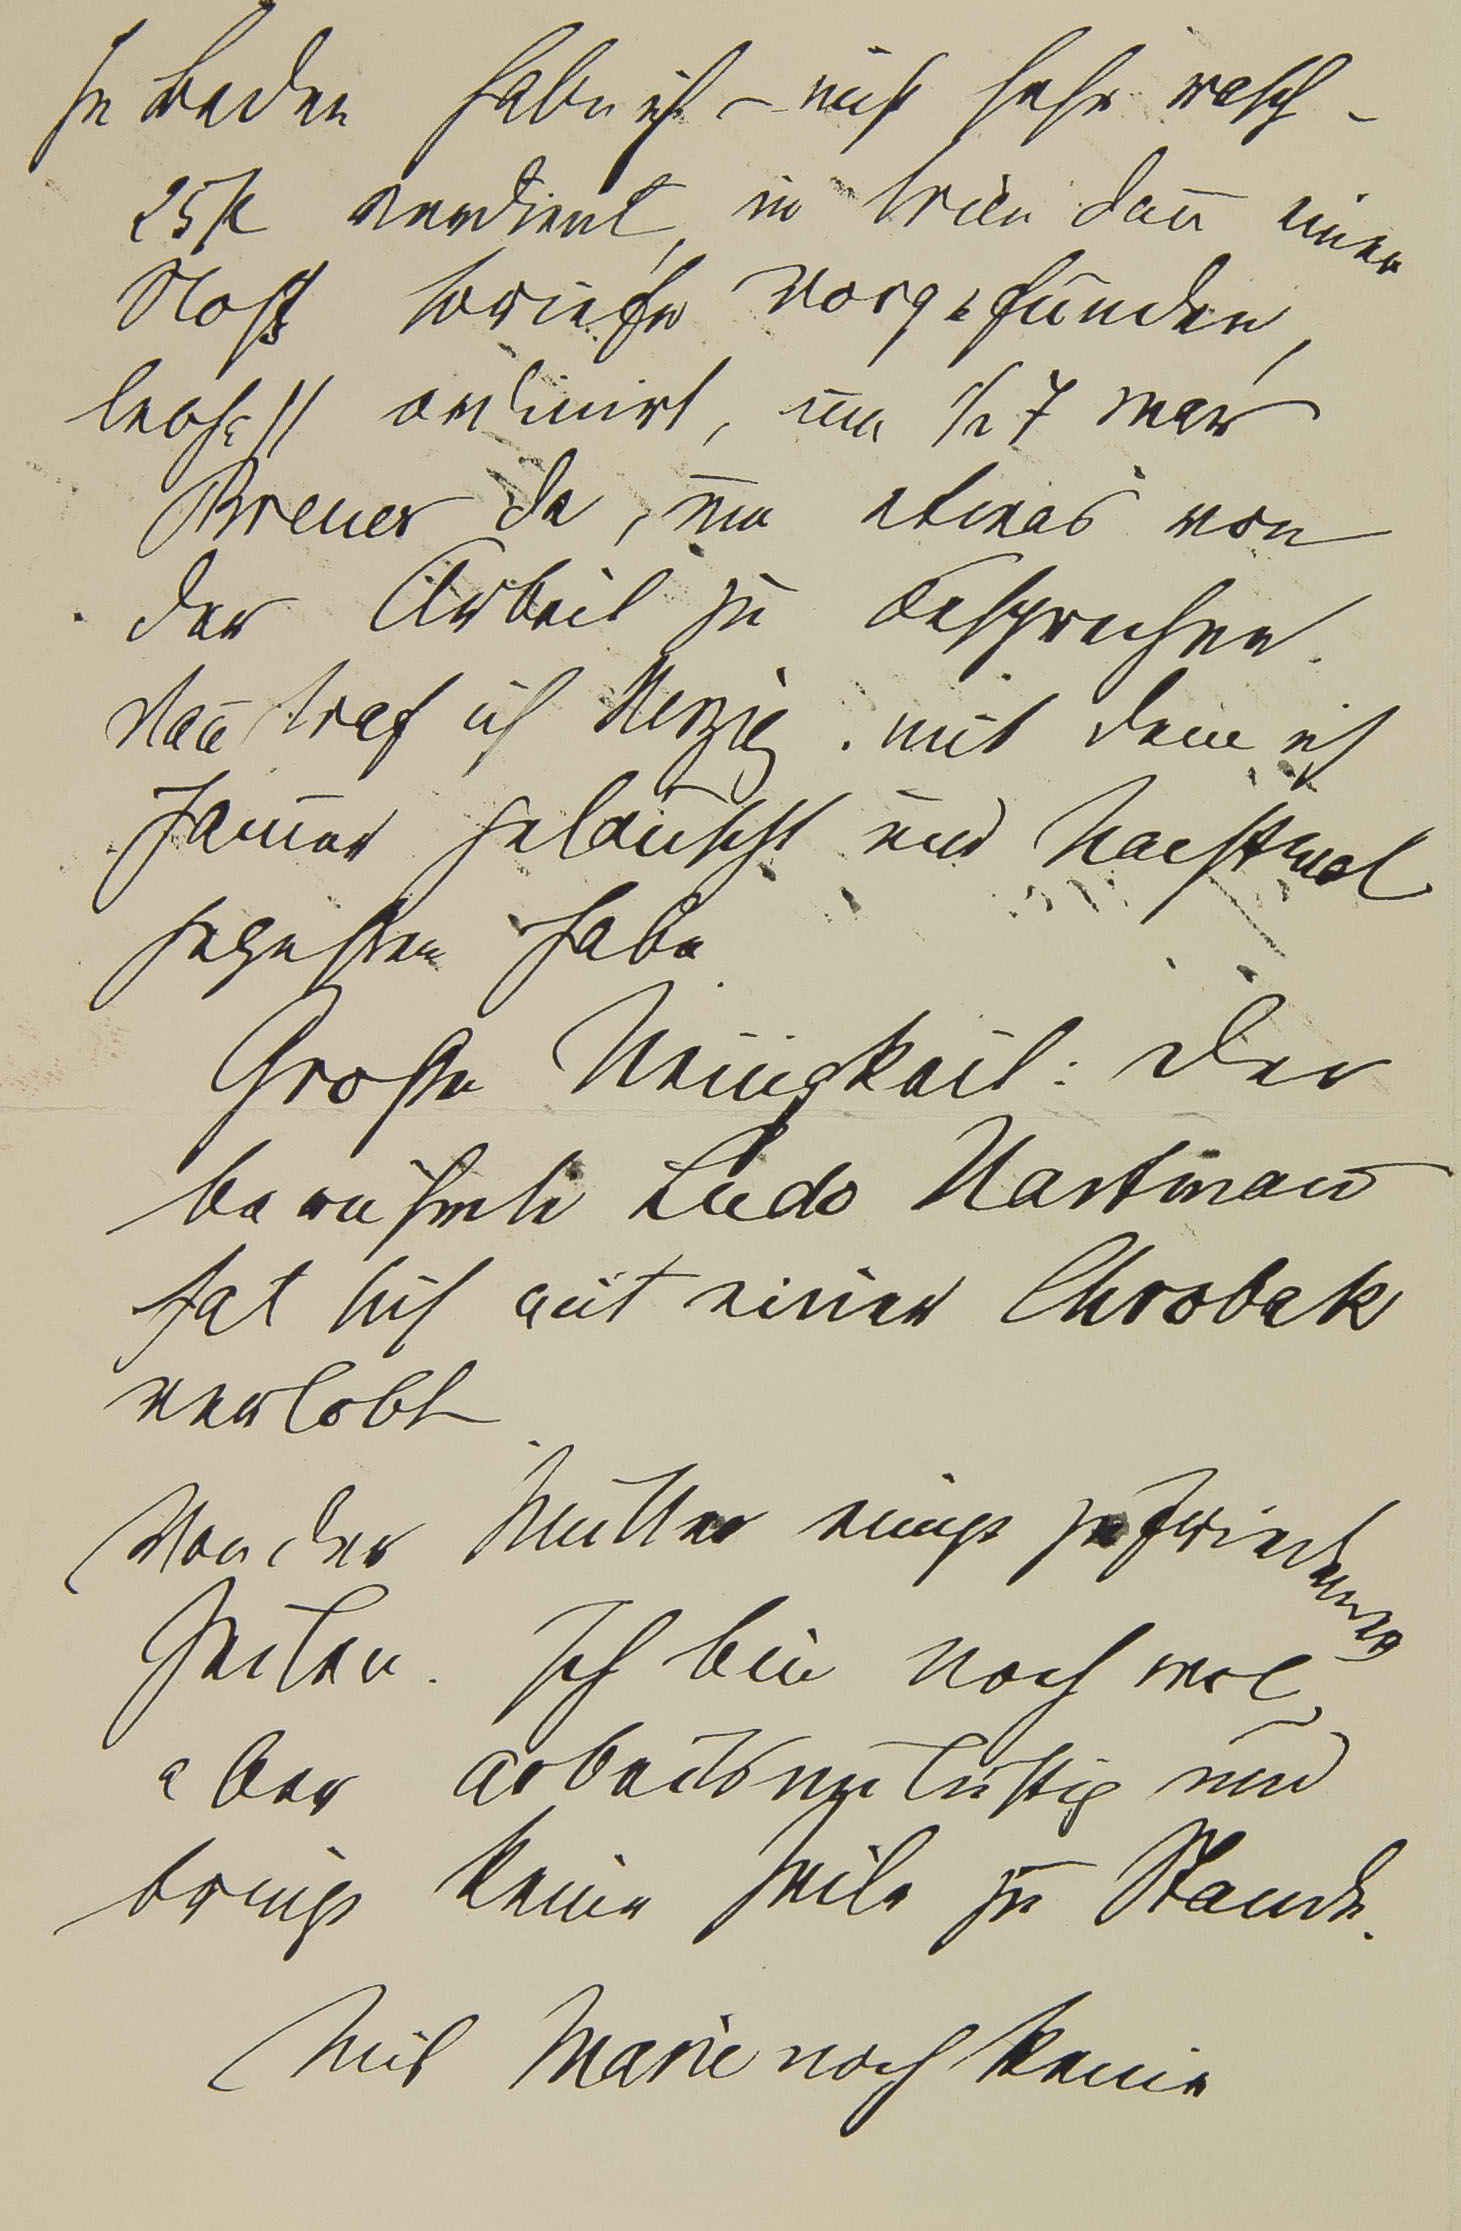 In Baden habe ich – nicht sehr rasch –
25 fl verdient, in Wien dan̄ einen
Stoß Briefe vorgefunden,
ordinirt, um 1/2 7 war
Breuer da, um etwas von
der Arbeit zu besprechen.
Dan̄ traf ich Herzig, mit dem ich
Jam̄er getauscht und Nachtmal
gegessen habe.
Große Neuigkeit: Der
berühmte Ludo Hartman̄
hat sich mit einer Chrobak
verlobt.
Von der Mutter einige zufriedenere
Zeilen. Ich bin noch wol,
aber arbeitsunlustig und
bringe keine Zeile zu Stande.
Mit Marie noch keine